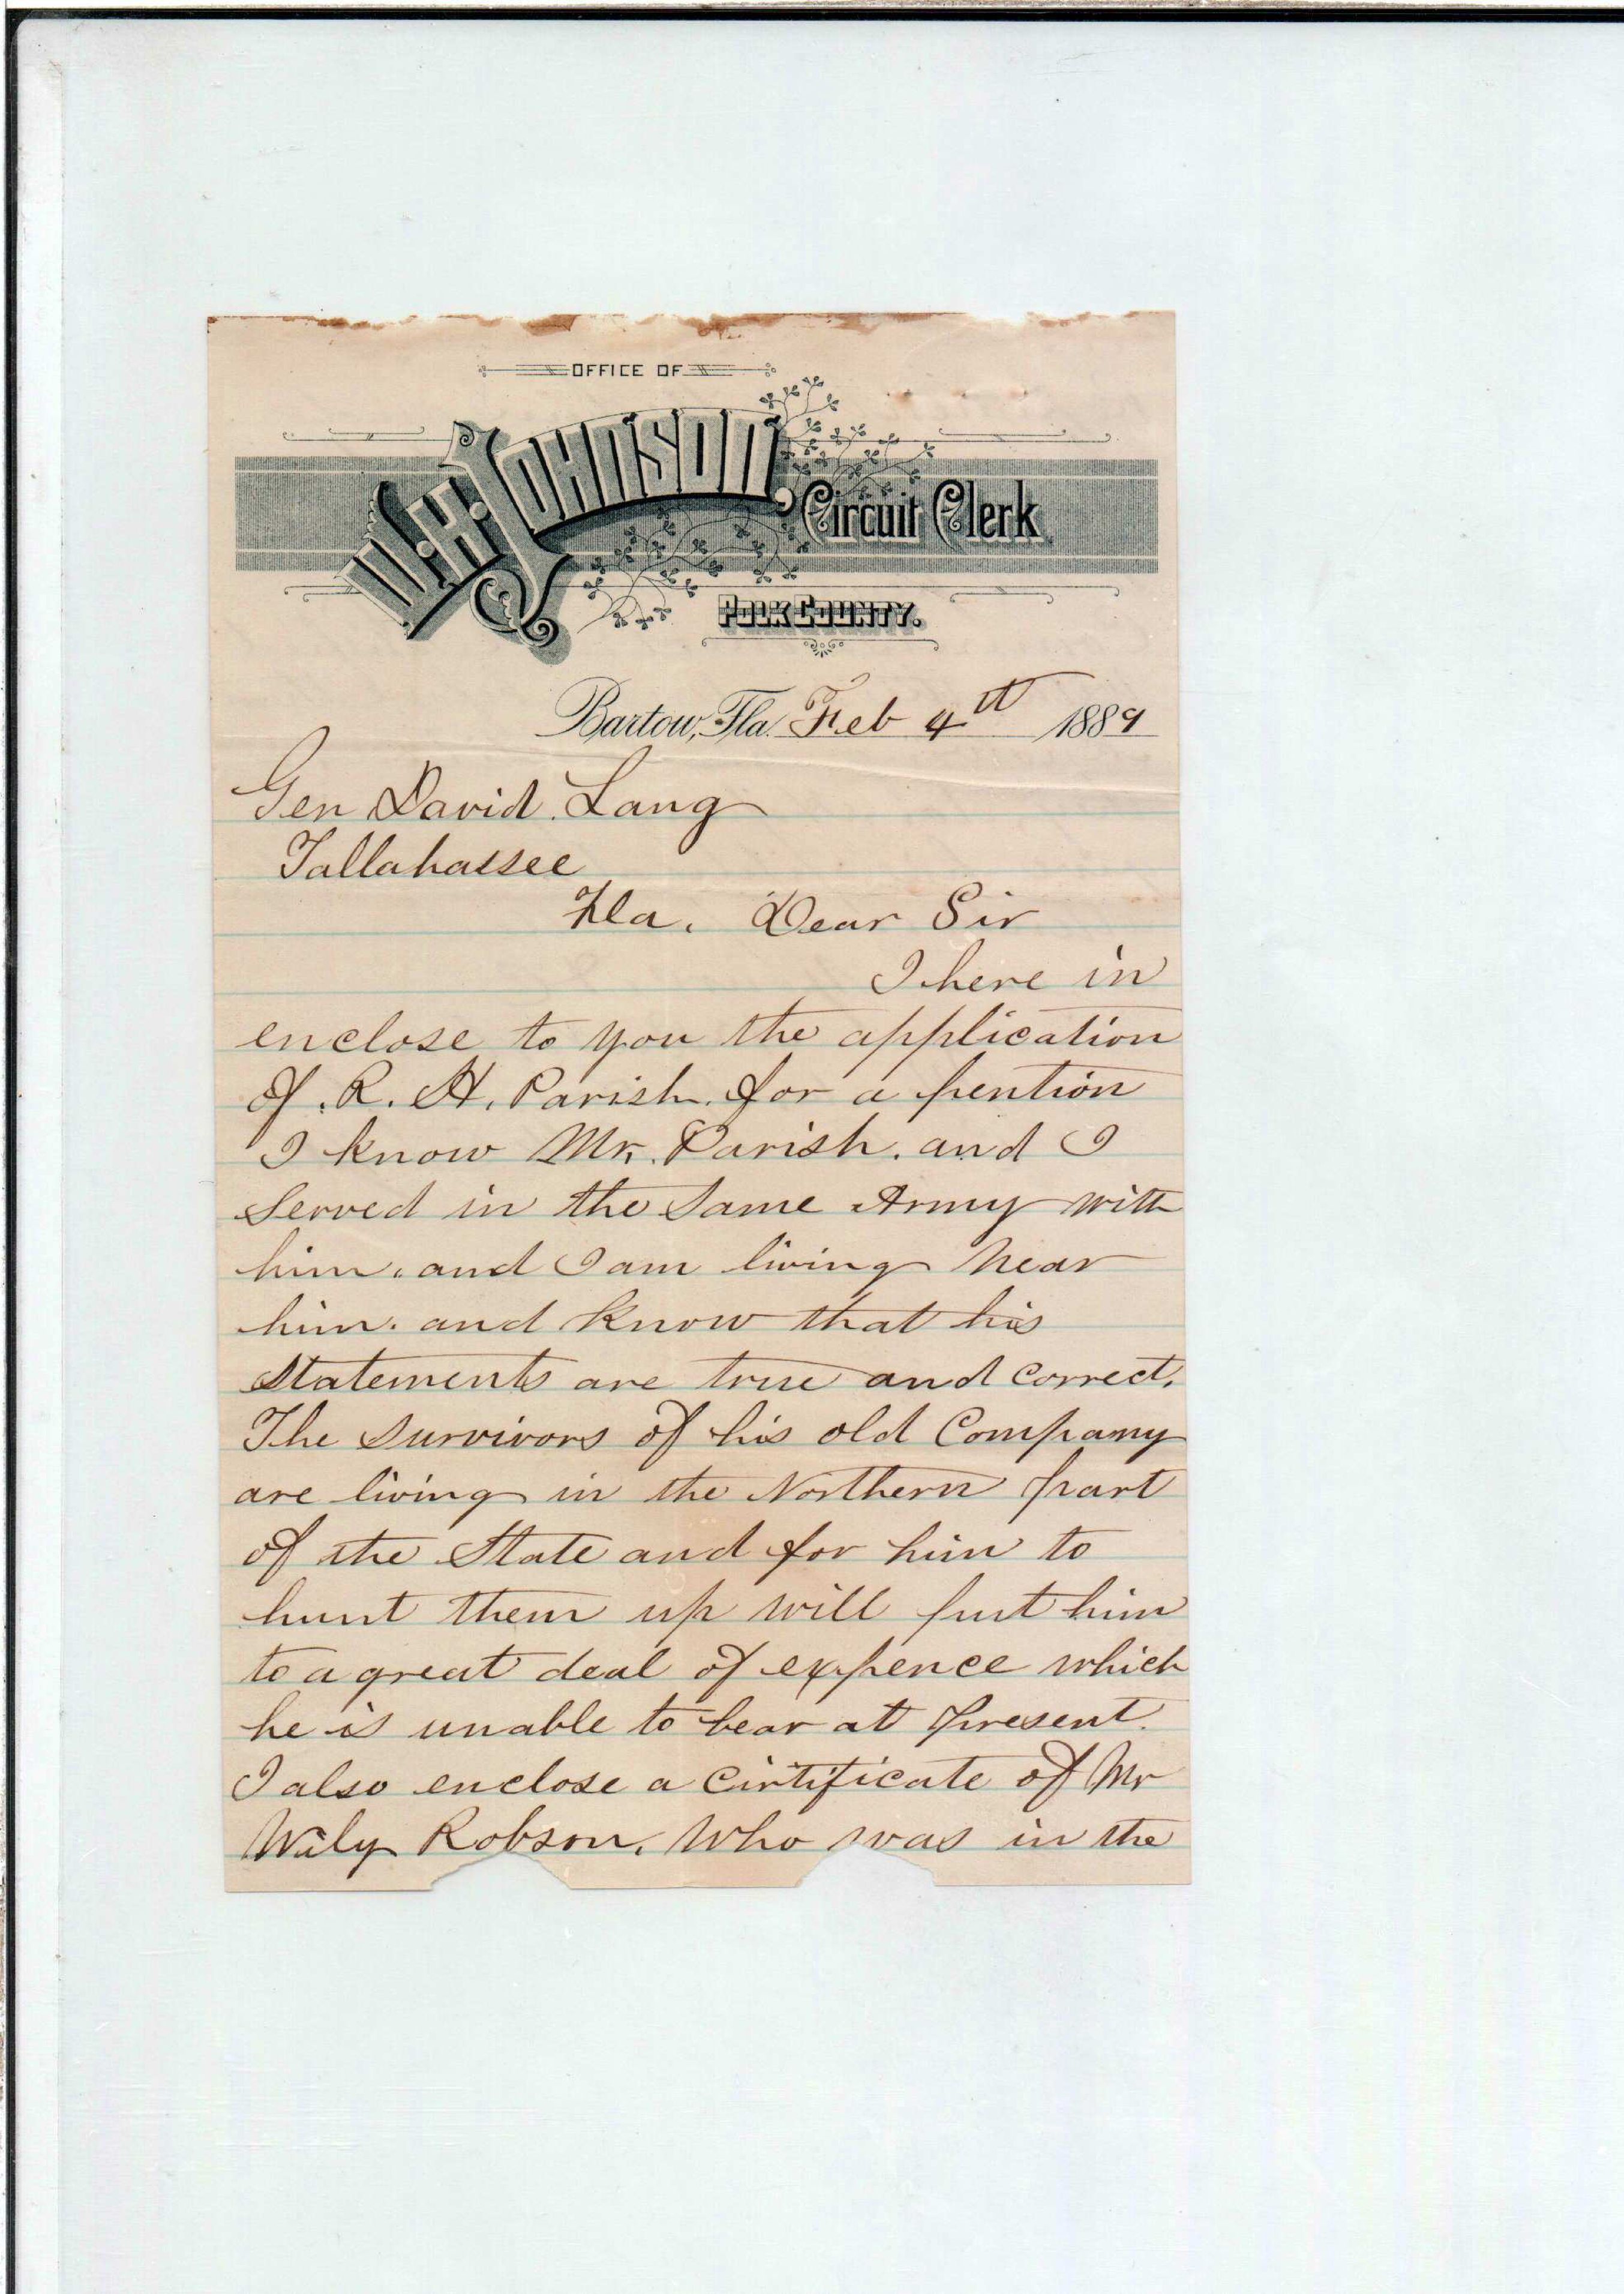 OFFICE OF
W. H. JOHNSON,
Circuit Clerk
POLK COUNTY.
Bartow, Fla. Feb 4th 1889
Gen David Lang
Tallahassee
Fla. Dear Sir
I here in
enclose to you the application
of R. H. Parish for a pention
I know Mr. Parish. and I
Served in the Same Army with
him. and I am living Near
him. and Know that his
Statements are true and Correct.
The Survivors of his old Company
are living in the Northern part
of the State and for him to
hunt them up will put him
to a great deal of expence which
he is unable to bear at Present.
I also enclose a Cirtificate of Mr
Wily Robson. Who was in the